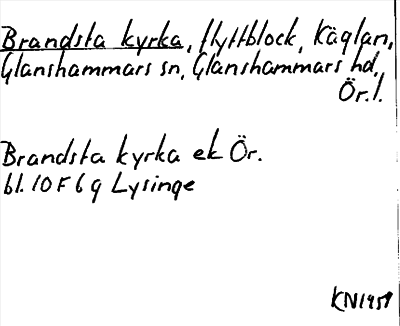 Brandsta kyrka, flyttblock, Käglan,
Glanshammars sn, Glanshammars hd,
Ör.l.
Brandsta kyrka ek Ör.
bl. 10 F 6 g Lysinge
KN1959